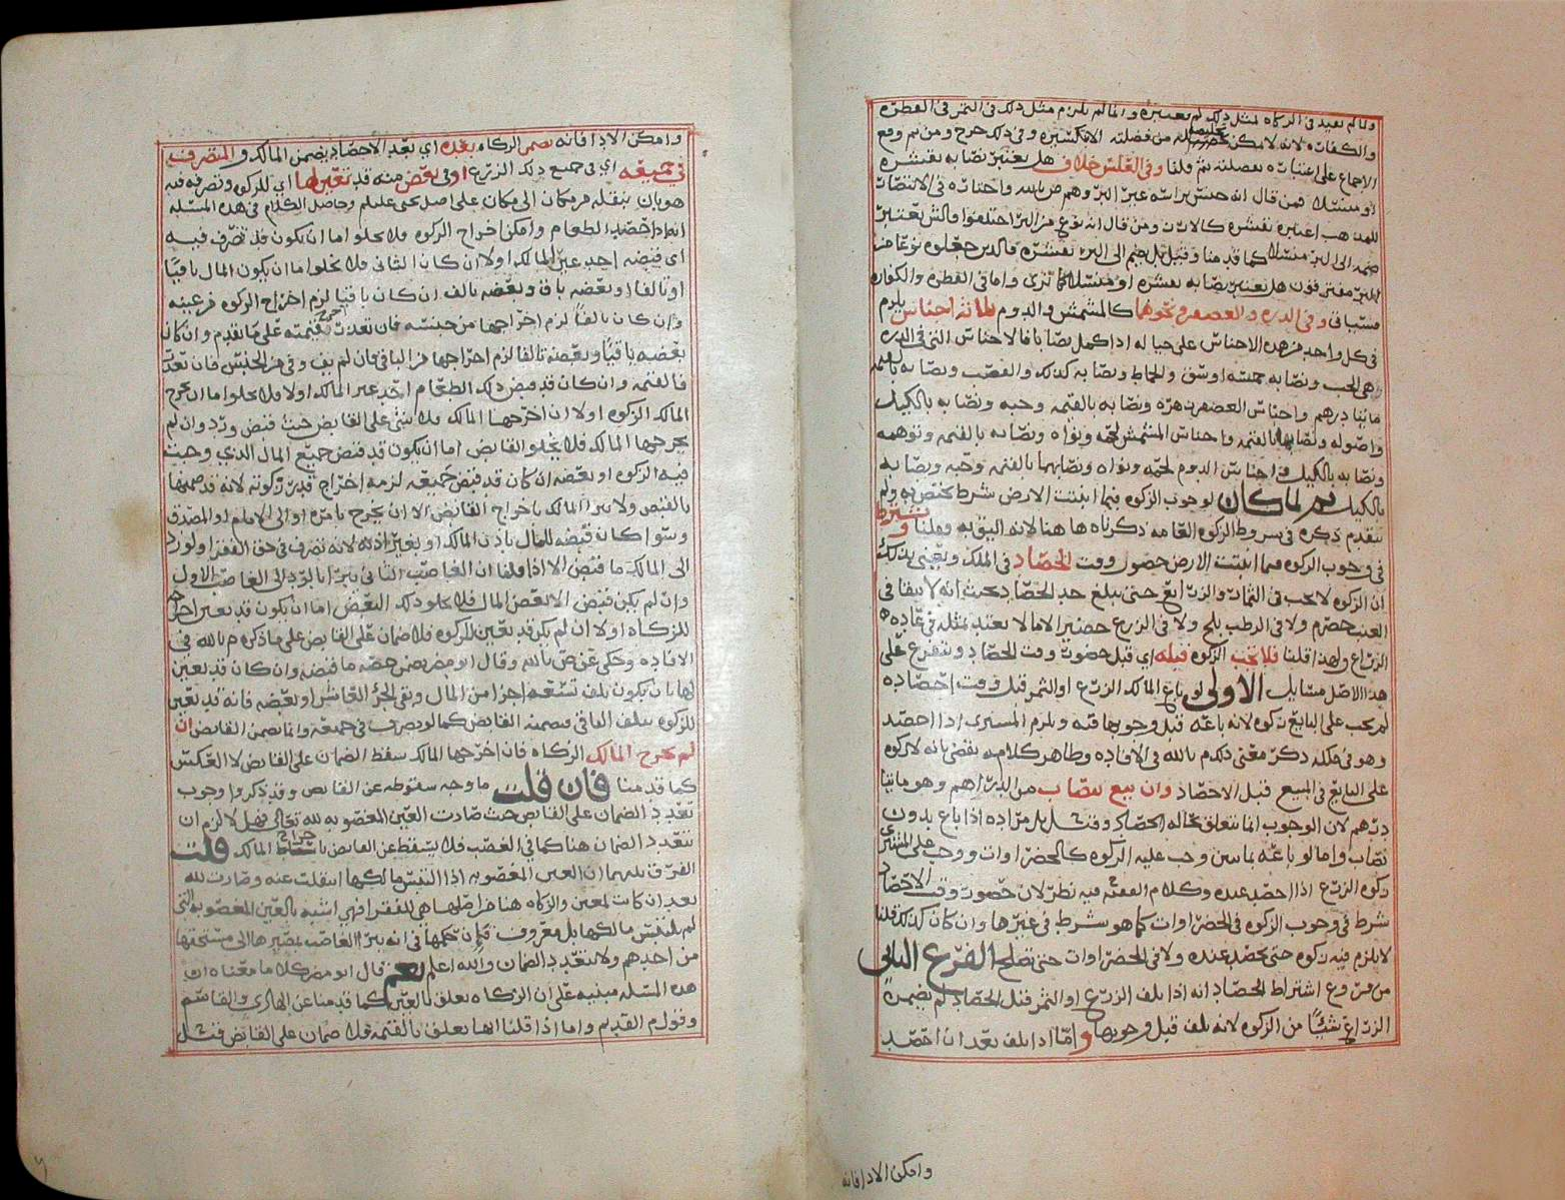 ولما لم يعتبر في الزكاة لمثل ذلك لم نعتبره وانما لم يلزم مثل ذلك في التمر في الفطره
والكفاره لانه لا يمكن تخليصه من فضلته الا بكسره وفي ذلك حرج ومن ثم وقع
الاجماع على اعتباره بفضلته ثم قلنا وفي العلس خلاف هل يعتبر نصابه بقشره
او منسلا فمن قال انه جنس براسه غير البر وهم ص بالله
للمذهب اعتبره بقشره كالارز ومن قال انه نوع من البر اختلفوا
ضمه الى البر منسلا كما قدمنا وقيل بل يضم الى البر بقشره فالذين جعلوه نوعا من
البر مفترقون هل يعتبر نصابه بقشره او منسلا كما ترى واما في الفطره والكفاره
فسياتي وفي الذره والعصفر ونحوها كالمشمش والدوم ثلاثه اجناس يلزم
في كل واحد من هذه الاجناس على حياله اذا كمل نصابا فالاجناس التي في الذره
هي الحب ونصابه خمسه اوسق والحماط ونصابه كذلك والقصب ونصابه بالقيمه
مايتا درهم واجناس العصفر زهره ونصابه بالقيمه وحبه ونصابه بالكيل
واصوله ونصابها بالقيمه واجناس المشمش لحمه ونواه ونصابه بالقيمه وتوهمه
ونصابه بالكيل واجناس الدوم لحمه ونواه ونصابهما بالقيمه وحبه ونصابه
بالكيل ثم لما كان لوجوب الزكوه فيما انبتت الارض شرط يختص به ولم
يتقدم ذكره في شروط الزكوه العامه ذكرناه هاهنا لانه اليق به وقلنا ويشترط
في وجوب الزكوه فيما انبتت الارض حصول وقت الحصاد في الملك ونعني بذلك
ان الزكوه لا تجب في الثمار والزرايع حتى يبلغ حد الحصاد بحيث انه لا يبقا في
العنب حصرم ولا في الرطب بلح ولا في الزرع حضير الا ما لا يعتد بمثله في عاده
الزراع ولهذا قلنا فلا تجب الزكوه قبله اي قبل حضور وقت الحصاد ويتفرع على
هذا الاصل مسايل الاولى لو باع المالك الزرع او الثمر قبل وقت احصاده
لم يجب على البايع زكوه لانه باعه قبل وجوبها فيه ويلزم المشتري اذا احصد
وهو في ملكه ذكر معنى ذلك م بالله في الافاده وظاهر كلامه يقضي بانه لا زكوه
على البايع في المبيع قبل الاحصاد وان بيع بنصاب من الدراهم وهو مايتا
درهم لان الوجوب انما يتعلق بحاله الحصاد وقيل بل مراده اذا باع بدون
نصاب واما لو باعه بمايتين وجب عليه الزكوه كالخضراوات ووجب على المشتري
زكوه الزرع اذا احصد عنده وكلام الفقيه فيه نظر لان حضور وقت الاحصاد
شرط في وجوب الزكوه في الخضراوات كما هو شرط في غيرها وان كان كذلك قلنا
لا يلزم فيه زكوه حتى يحصد عنده ولا في الخضراوات حتى تصلح الفرع الثاني
من فروع اشتراط الحصاد انه اذا تلف الزرع او الثمر قبل الحصاد لم يضمن
الزراع شيئا من الزكوه لانه تلف قبل وجوبها واما اذا تلف بعد ان احصد
وامكن الادا فانه
وامكن الادا فانه يضمن الزكاه بعده اي بعد الاحصاد يضمن المالك والمتصرف
في جميعه اي في جميع ذلك الزرع او في بعض منه قد تعين لها اي للزكوه وتصرفه فيه
هو بان ينقله من مكان الى مكان على اصل يحيى عليلم وحاصل الكلام في هذه المسئله
انه اذا حصد الطعام وامكن اخراج الزكوه فلا يخلوا اما ان يكون قد تصرف فيه
اي قبضه احد غير المالك او لا ان كان الثاني فلا يخلوا اما ان يكون المال باقيا
او تالفا او بعضه باق وبعضه تالف ان كان باقيا لزم اخراج الزكوه من عينه
وان كان تالفا لزم اخراجها من جنسه فان تعذرت فقيمته على ما تقدم وان كان
بعضه باقيا وبعضه تالفا لزم اخراجها من الباقي فان لم يف وفى من الجنس فان تعذر
فالقيمه وان كان قد قبض ذلك الطعام احد غير المالك او لا فلا يخلوا اما ان يخرج
المالك الزكوه او لا ان اخرجها المالك فلا شي على القابض حيث قبض ورد وان لم
يخرجها المالك فلا يخلو القابض اما ان يكون قد قبض جميع المال الذي وجبت
فيه الزكوه او بعضه ان كان قد قبض جميعه لزمه اخراج قدر زكوته لانه قد ضمنها
بالقبض ولا يبرا المالك باخراج القابض الا ان يخرج بامره او الى الامام او المصدق
وسوا كان قبضه للمال باذن المالك او بغير اذنه لانه تصرف في حق الفقرا ولو رد
الى المالك ما قبض الا اذا قلنا ان الغاصب الثاني يبرا بالرد الى الغاصب الاول
وان لم يكن قبض الا بعض المال فلا يخلو ذلك البعض اما ان يكون قد تعين اخراجه
للزكاه او لا ان لم يكن قد تعين للزكوه فلا ضمان على القابض على ما ذكره م بالله في
الافاده وحكى عن ص بالله وقال ابو مضر يضمن حصه ما قبضه وان كان قد تعين
لها بان يكون تلف تسعه اجزا من المال وبقي الجزء العاشر او بعضه فانه قد تعين
للزكوه بتلف الباقي فيضمنه القابض كما لو تصرف في جميعه وانما يضمن القابض ان
لم يخرج المالك الزكاه فان اخرجها المالك سقط الضمان على القابض لا العكس
كما قدمنا فان قلت ما وجه سقوطه عن القابض وقد ذكروا وجوب
تعدد الضمان على القابض حيث صارت العين المغصوبه لله تعالى فهل لا لزم ان
يتعدد الضمان هنا كما في الغصب فلا يسقط عن القابض باخراج المالك قلت
الفرق بينهما ان العين المغصوبه اذا التبس مالكها انتقلت عنه وصارت لله
بعد ان كانت لمعين والزكاه هنا من اصلها هي للفقرا فهي اشبه بالعين المغصوبه التي
لم يلتبس مالكها بل معروف فان حكمها في انه يبرا الغاصب بمصيرها الى مستحقها
من احدهم ولا يتعدد الضمان والله اعلم نعم قال ابو مضر كلاما معناه ان
هذه المسئله مبنيه على ان الزكاه تعلق بالعين كما قدمنا عن الهادي والقاسم
وقول م القديم واما اذا قلنا انها تعلق بالقيمه فلا ضمان على القابض قيل